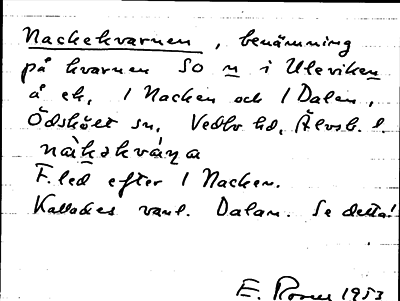 Nackekvarnen, benämning
på kvarnen SO n i Uleviken
å ek. 1 Nacken och 1 Dalen,
Ödskölt sn, Vedbo hd, Älvsb. l.
nàkəkvàṇa
F. led efter 1 Nacken.
Kallades vanl. Dalan. Se detta!
E. 1953